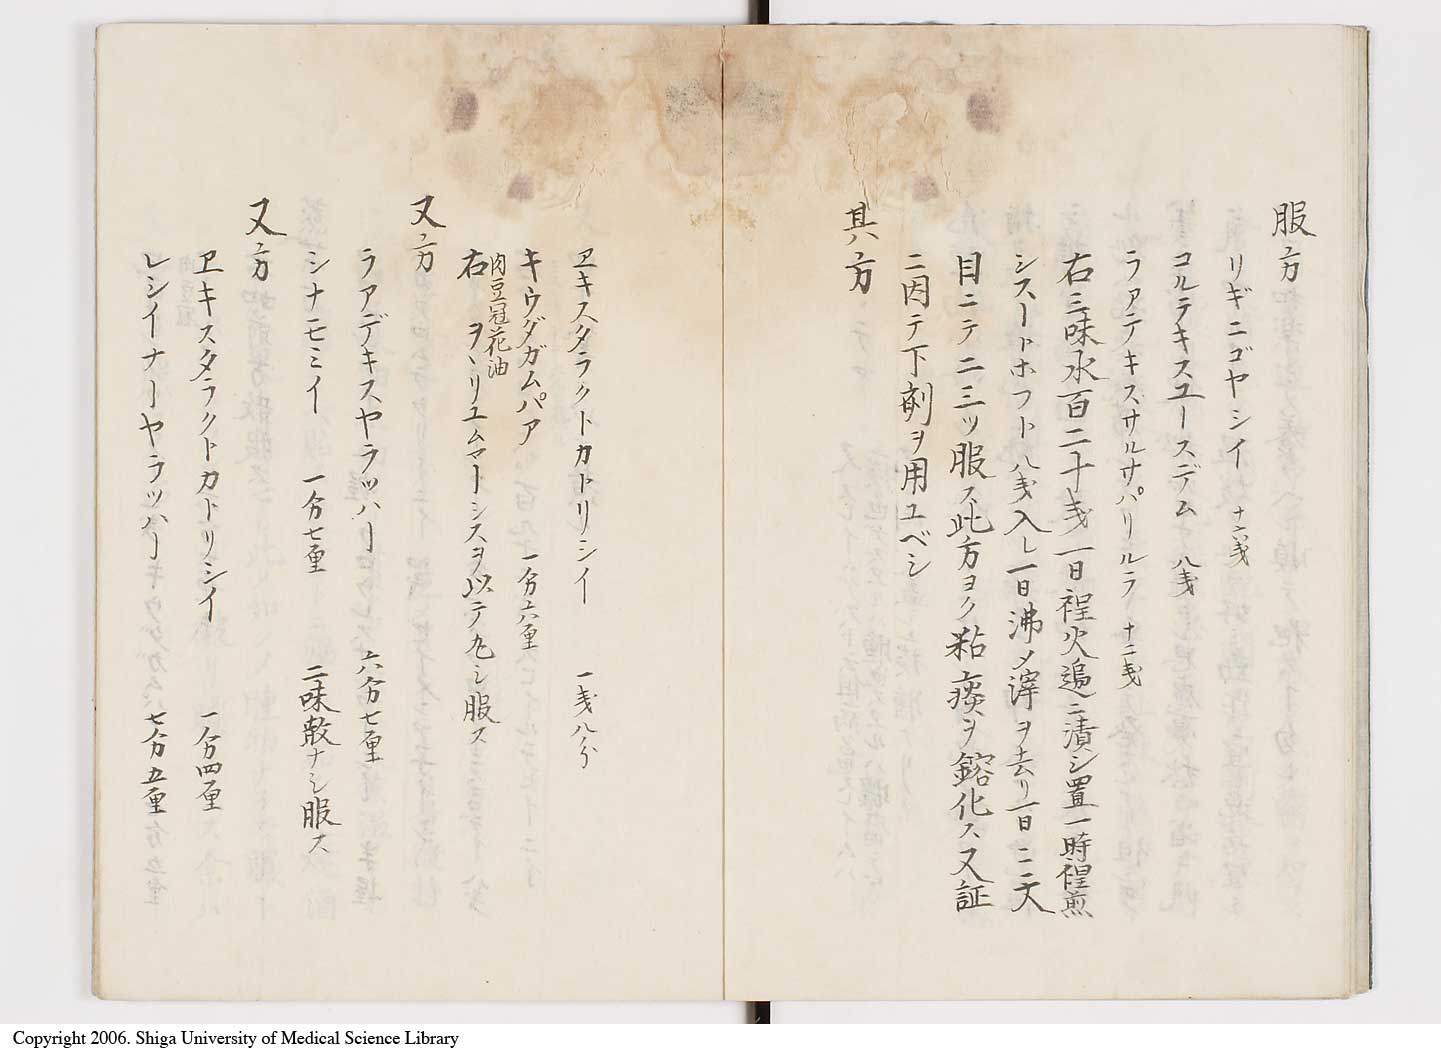 服方
リギニゴヤシイ 十六戔
コルテキスユースデム 八戔
ラアテキスサルサパリルラー 十二戔
右三味水百二十戔一日裎火過ニ漬シ置一時裎煎
シスートホフト八戔入レ一日沸メ滓ヲ去リ一日ニ二大
目ニテ二三ツ服ス此方ヨク粘痰ヲ鎔化ス又証
ニ因テ下剤ヲ用ユベシ
其方
ヱキスタラクトカトリシイ 一戔八分
キウダガムパア 一分六厘
肉豆冠花油
右ヲヽリユムマーシスヲ以テ丸シ服ス
又方
ラアデキスヤラッハー 六分七厘
シナモミイ 一分七厘 二味散ナシ服ス
又方
ヱキスタラクトカトリシイ 一分四厘
レシイナーヤラッハー 七分五厘